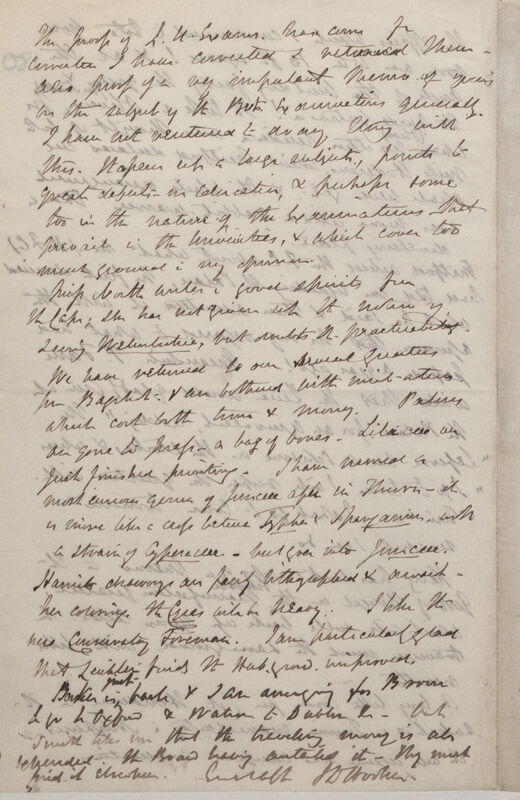 The proof of L. H. Exams. have come
corrected I have corrected & returned them -
also proof of a very important Memo of yours
on the subject of the Bot. Examinations generally.
I have not ventured to do any thing with
this. It opens up a large subject, points to
great defects in education, & perhaps some
too in the nature of the Examinations that
prevail in the Universities, & which cover too
much ground in my opinion.
Miss North writes in good spirits from
the Cape; she has not given up the notion of
seeing Welwitschia, but doubts the practicability
We have returned to our several quarters
from Baptist - & are bothered with
which cost both time & money. Palms
are gone to press - a bag of bones - Liliaceae are
just finished printing. I have named a
most curious genus of Junceae after - it
is more like a cross between Typha & Sparganium, with
a strain of Cyperaceae - but goes into Junceae.
drawings are being lithographed & await
her coloring. the will be heavy. I like the
new Conservatory Foreman. I am particularly glad
that finds the Herb. ground improved.
Baker is just back & I am arranging for Brown
to go to Oxford & Watson to Dublin &c - but
Smith tells me that the traveling money is all
expended - the Board having curtailed it - They must
find it elsewhere. J D Hooker.